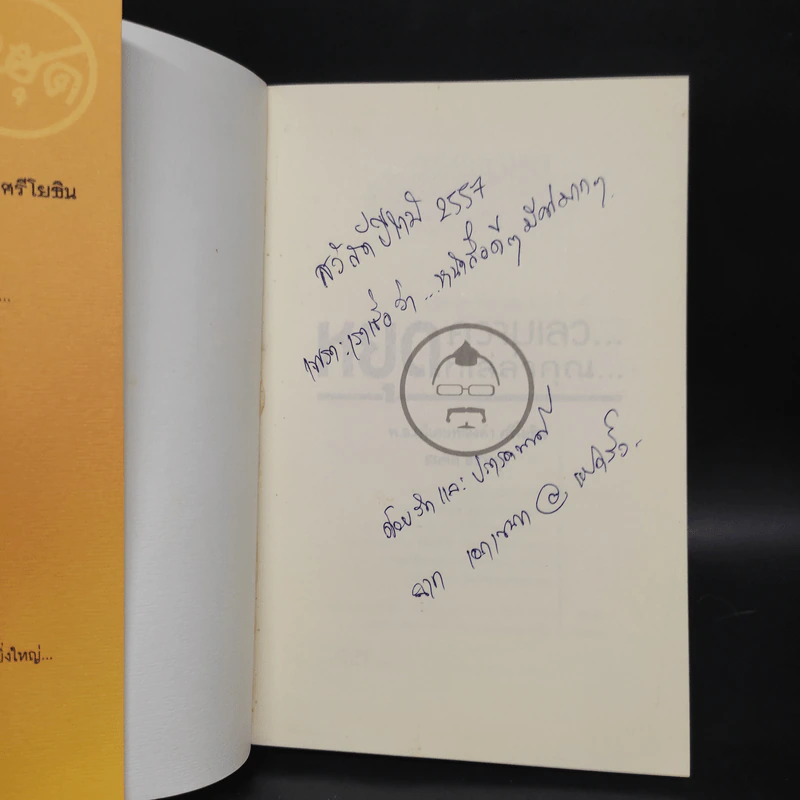 หยุด
ศรีโยธิน
...
ยิ่งใหญ่...
สวัสดีปีใหม่ 2557
เพราะเราเชื่อว่า ... หนังสือดีๆ มีค่ามากๆ
หยุด ความเลว...
ด้วยรักและปรารถนาดี
จาก @